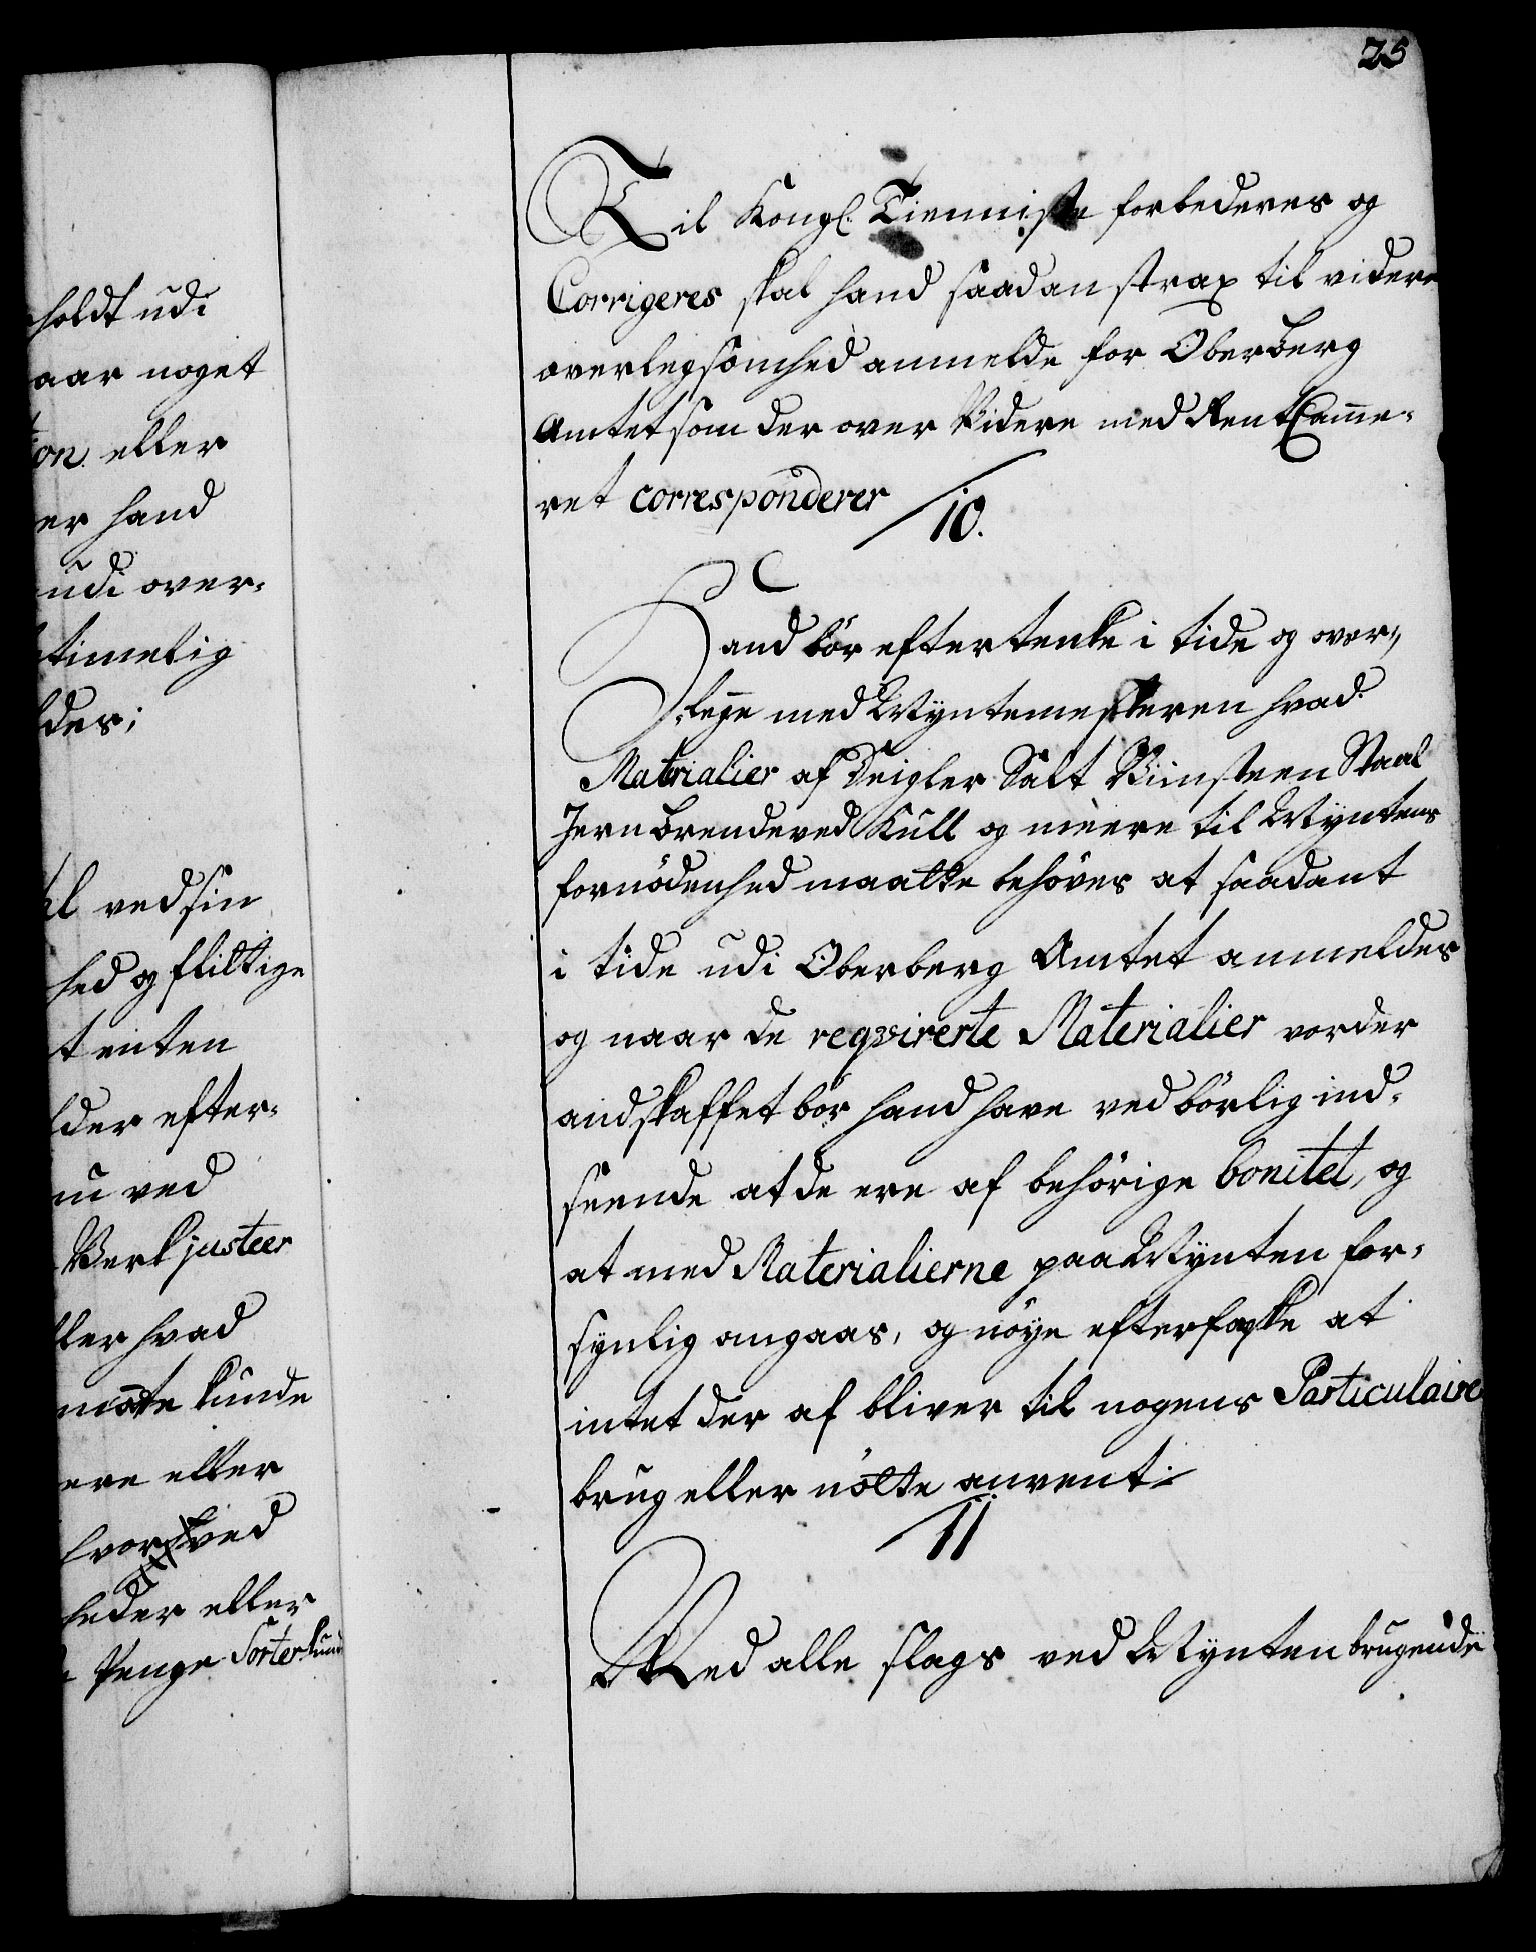 25
Til Kongl. Tienniste forbederes og
Corrigeres skal hand saadan strax til videre
overlegsomhed anmelde for Oberberg
Amtet som der over Videre med RentCam̅e-
ret corresponderer
10.
Hand bör eftertenke i tide og over-
legge med Myntemesteren hvad
Materialier af Deigler Salt Viinsteen Staal
Jern brendeved Kull og meere til Myntens
fornödenhed maatte behöves at saadant
i tide udi Oberberg Amtet anmeldes
og naar de reqvirerte Materialier vorder
andskaffet bör hand have ved börlig ind-
seende at de ere af behörige bonitet, og
at med Materialierne paa Mynten for-
synlig omgaas, og nöye efterforske at
intet der af bliver til nogens Particulaire
brug eller nötte anvent
11
Med alle slags ved Mynten brugende
holdt udi
aar noget
on eller
er hand
udi over-
timelig
des;
l ved sin
hed og flittige
t enten
der efter-
ved
Verk justeer
ler hvad
motte kunde
ere eller
hvor ved
heder eller
Penge Sorter kund